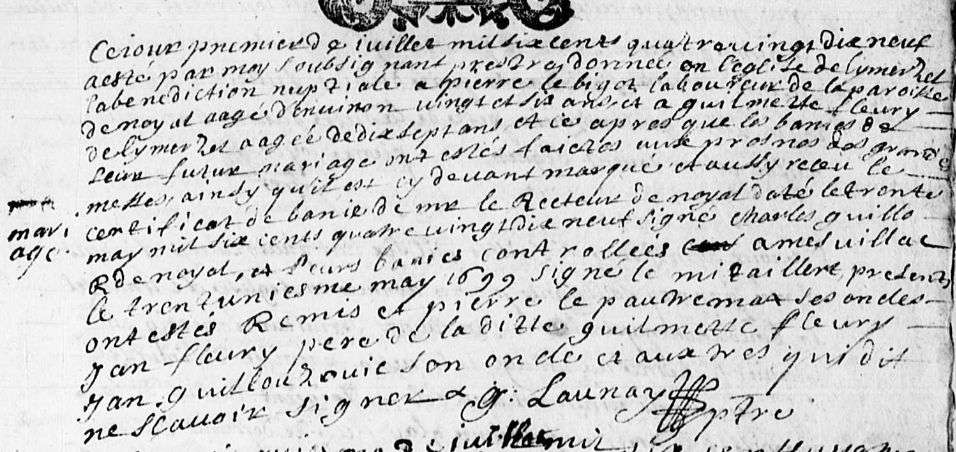 Ce iour premier de iuillet mil six cents quatre vingt dix neuf
a esté par moy soubsignant prestre donnee en l'eglise de lymerhel
la benediction nuptiale a pierre le bigot laboureur de la paroisse
de noyal aagé d'environ vingt et six ans et a guilmette fleury
de lymerhel aagée de dix sept ans, et ce apres que les banies de
leur futur mariage ont estés faictes aux prosnes des grandes
messes, ainsy qu'il est cy devant marqué et aussy receu le
mari
age
certificat de banie de mr le Recteur de noyal daté le trente
may mil six cents quatre vingt dix neuf signé charles guillo
R de noyal, et leurs banies controllees a mesuillac
le trentuniesme may 1699 signé le mitaillert, presents
ont estés Remis et pierre le pautremat ses oncles
Jan fleury pere de la ditte guilmette fleury
Jan guillouzouic son oncle et aux tres qui dit
ne scavoir signer & g: Launay ptre
de iuillet mil